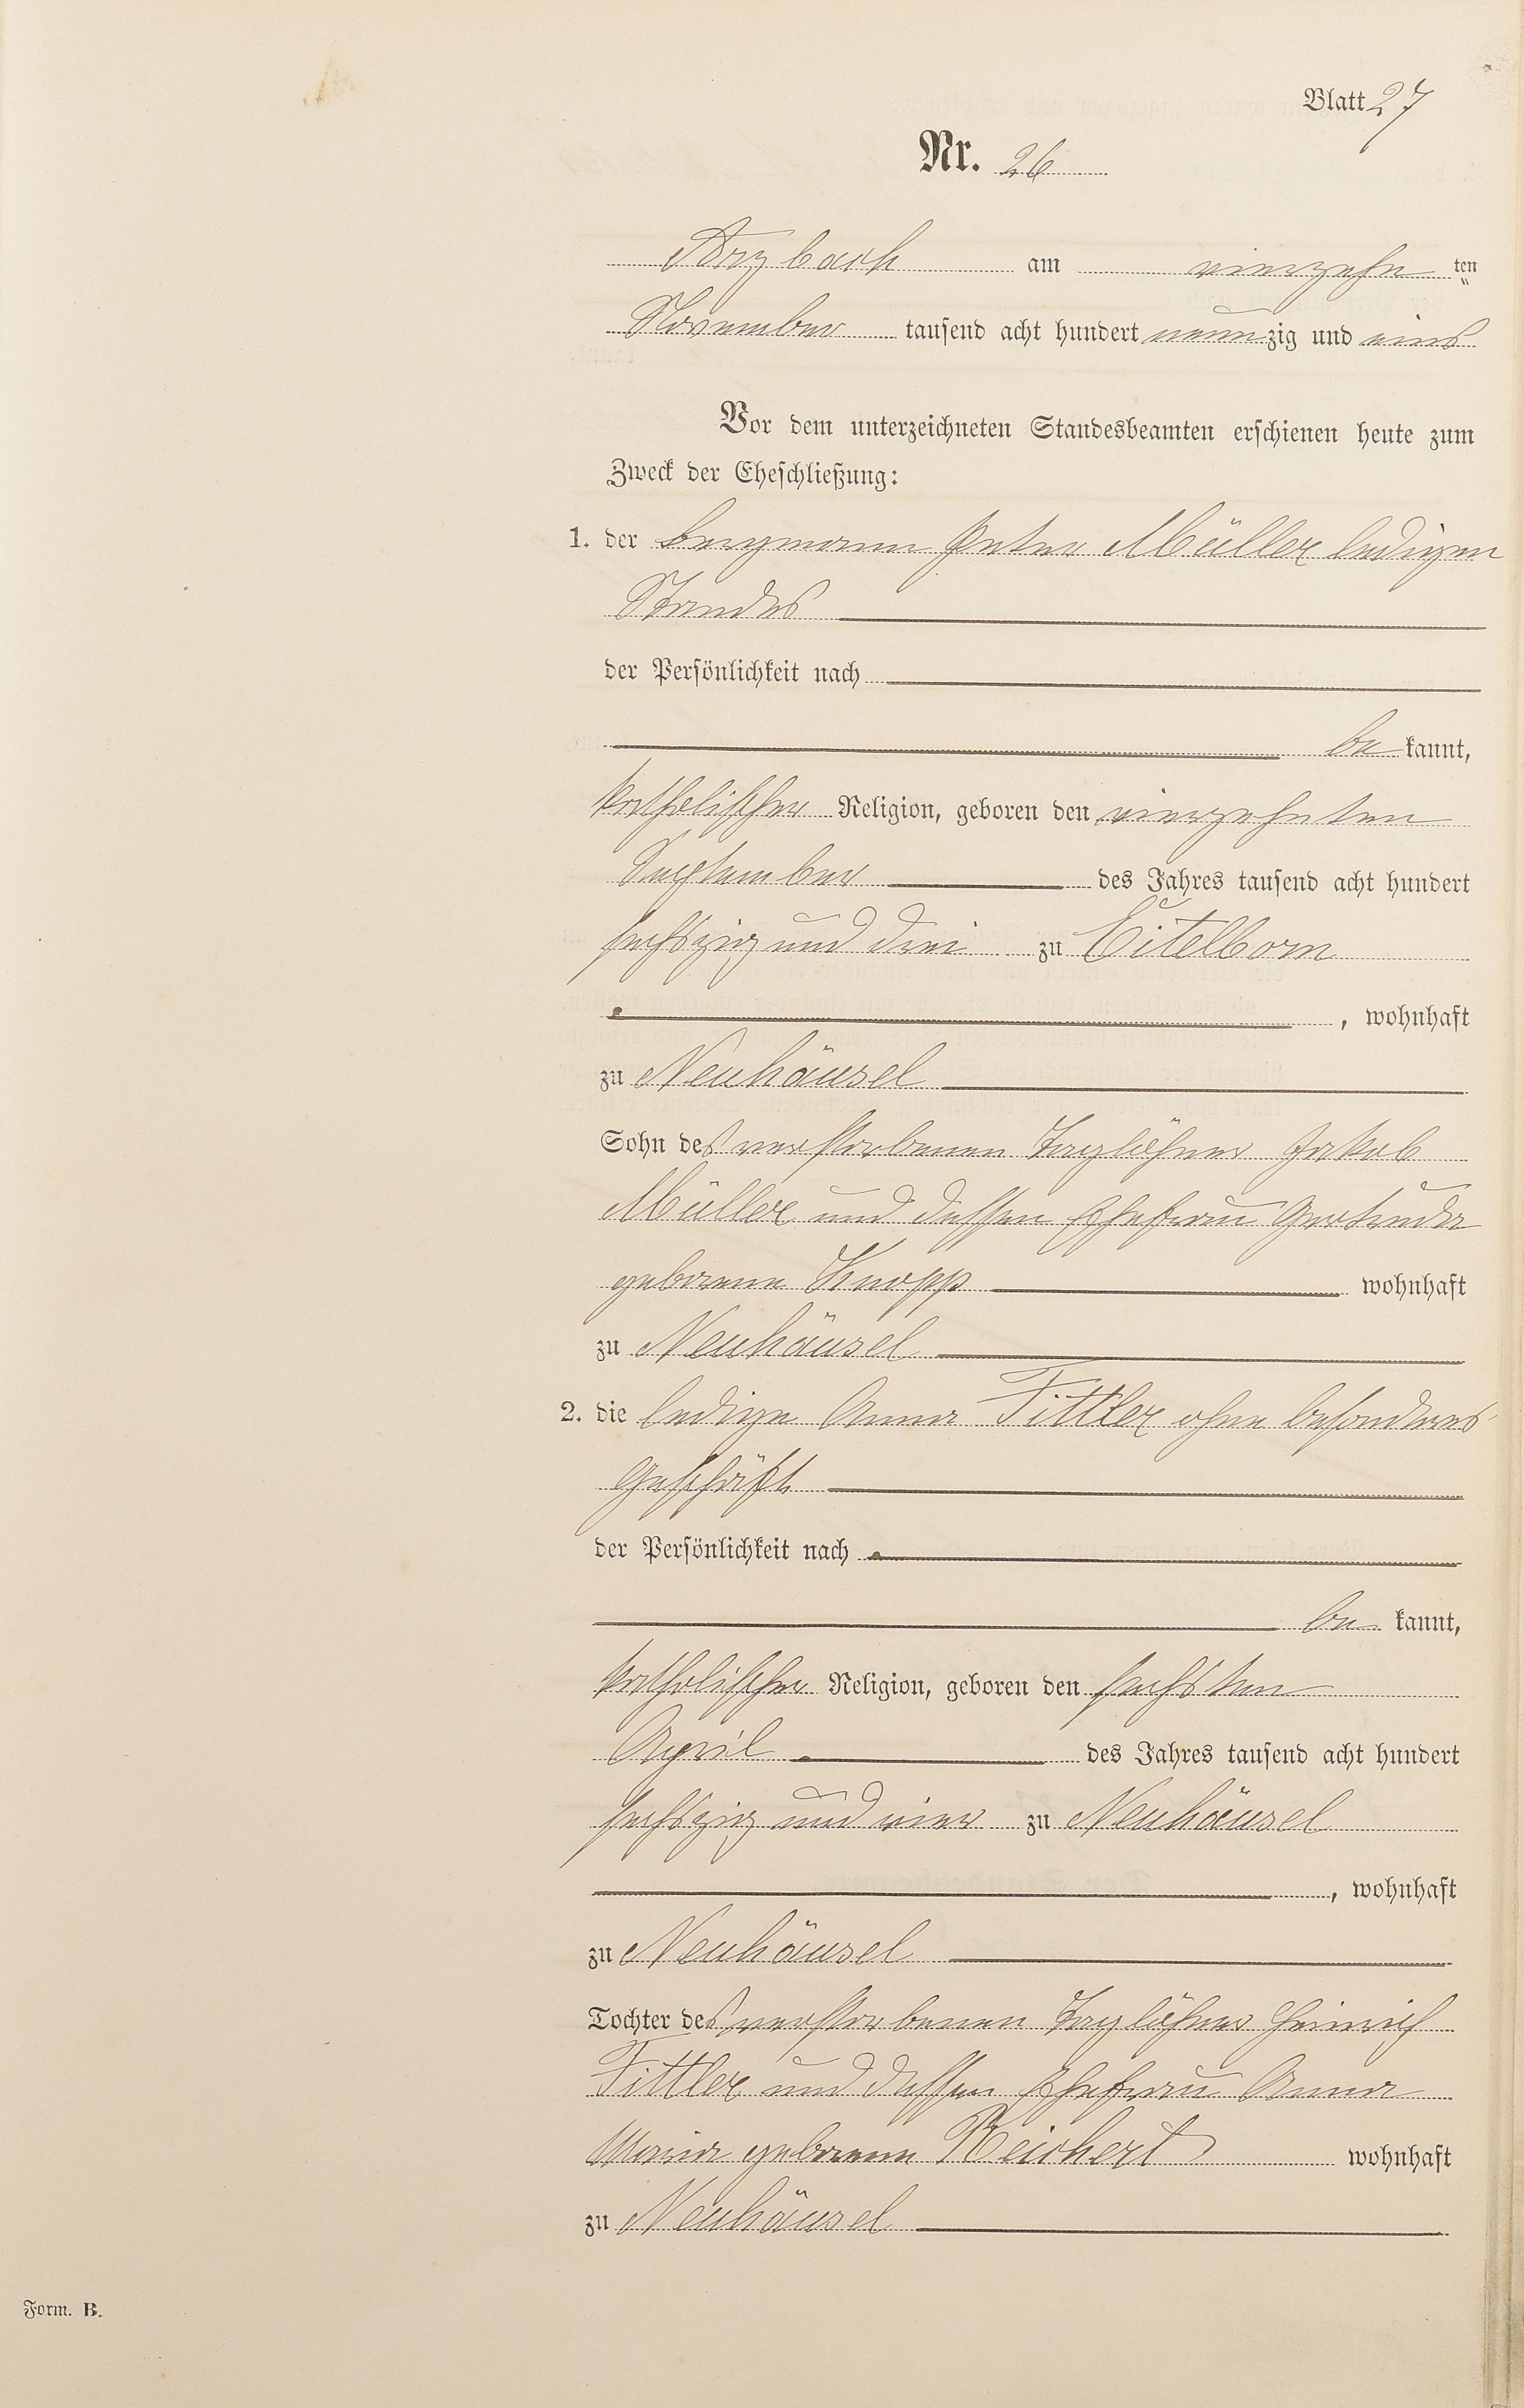 Blatt 27
Nr. 26
Arzbach am vierzehn ten
November tausend acht hundert neunzig und eins
Vor dem unterzeichneten Standesbeamten erschienen heute zum
Zweck der Eheschließung:
1. der Bergmann Peter Müller ledigen
Standes
der Persönlichkeit nach
be kannt,
katholischer Religion, geboren den vierzehnten
September des Jahres tausend acht hundert
sechszig und drei zu Eitelborn
, wohnhaft
zu Neuhäusel
Sohn des verstorbenen Taglöhner Jakob
Müller und dessen Ehefrau Gertruda
geborene Knopp wohnhaft
zu Neuhäusel
2. die ledige Anna Tittler ohne besonderes
Geschäft
der Persönlichkeit nach
be kannt,
katholischer Religion, geboren den sechsten
April des Jahres tausend acht hundert
sechszig und vier zu Neuhäusel
, wohnhaft
zu Neuhäusel
Tochter des verstorbenen Taglöhner Heinrich
Tittler und dessen Ehefrau Anna
Maria geborene Reichert wohnhaft
zu Neuhäusel
Form. B.